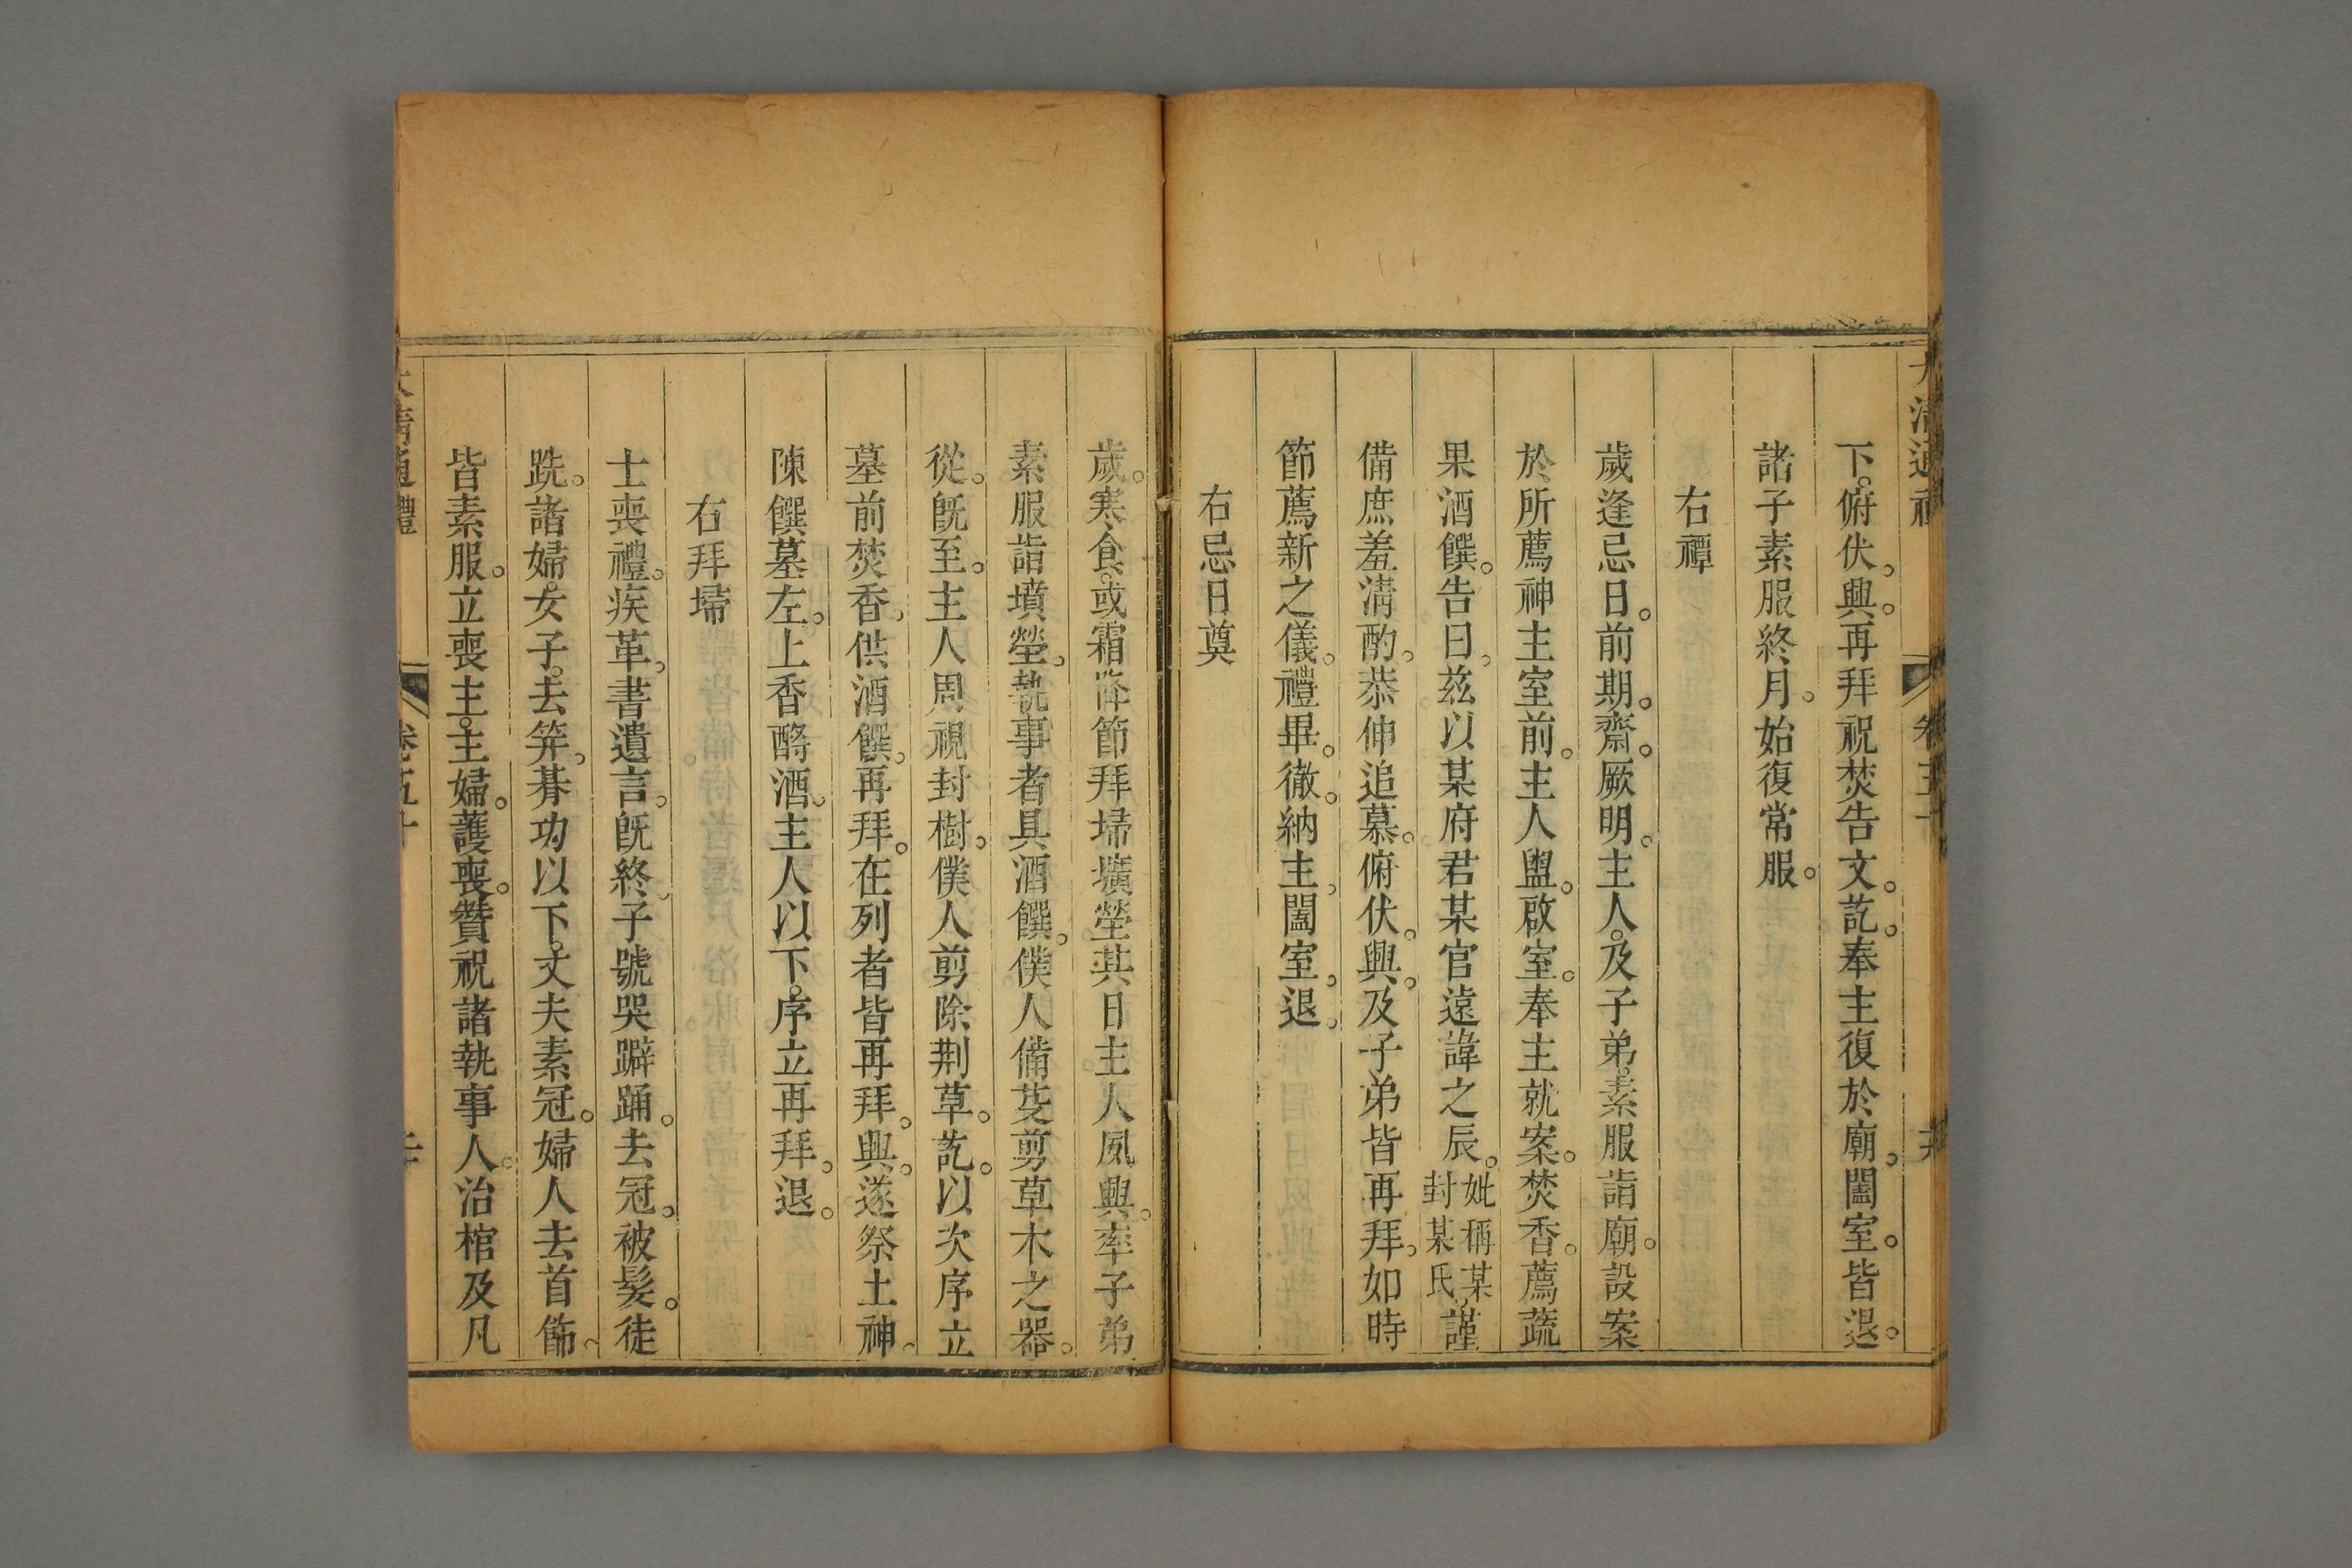 大清通禮 卷五十
下。俯伏。興。再拜祝焚告文。訖。奉主復於廟。闔室。皆退。
諸子素服終月。始復常服。
右禫
歲逢忌日。前期。齋。厥明。主人。及子弟。素服詣廟。設案
於所薦神主室前。主人盥。啟室。奉主就案。焚香。薦蔬
果酒饌。告曰。茲以某府君某官遠諱之辰。妣稱某封某氏。謹
備庶羞清酌。恭伸追慕。俯伏。興。及子弟皆再拜。如時
節薦新之儀。禮畢。徹。納主。闔室。退。
右忌日奠
歲。寒食。或霜降節拜埽壙塋其日主人夙興。率子弟
素服詣墳塋。執事者具酒饌。僕人備芟剪草木之器。
從。既至。主人周視封樹。僕人剪除荆草。訖。以次序立
墓前焚香。供酒饌。再拜。在列者皆再拜。興。遂祭土神。
陳饌墓左。上香酹酒。主人以下。序立再拜。退。
右拜埽
士喪禮。疾革。書遺言。既終。子號哭擗踊。去冠。被髮。徒
跣。諸婦。女子。去笄。朞功以下。丈夫素冠。婦人去首飾。
皆素服。立喪主。主婦。護喪。贊祝諸執事人。治棺及凡
大清通禮 卷五十